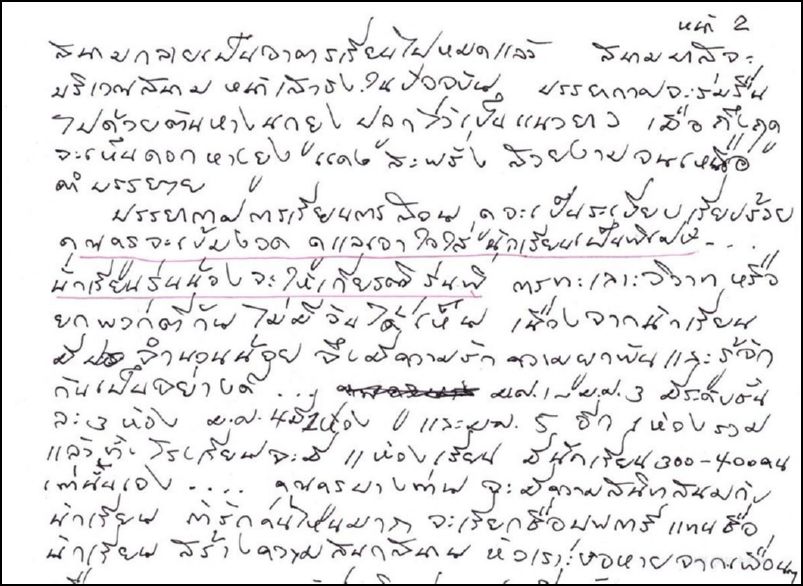 หน้า 2
สนามกลายเป็นอาคารเรียนไปหมดแล้ว สนามบาสจะ
บริเวณสนาม หน้าเสาธง ในปัจจุบัน บรรยากาศจะร่มรื่น
ไปด้วยต้นหางนกยูง ปลูกไว้เป็นแนวยาว เมื่อถึงฤดู
จะเห็นดอกหางยูง แดง สะพรั่ง สวยงามจนเหนือ
คำบรรยาย
บรรยากาศการเรียนการสอน ก็จะเป็นระเบียบเรียบร้อย
คุณครูจะเข้มงวด ดูแลเอาใจใส่ นักเรียนเป็นพิเศษ ....
นักเรียนรุ่นน้องจะให้เกียรติรุ่นพี่ การทะเลาะวิวาท หรือ
ยกพวกตีกัน ไม่มีวันได้เห็น เนื่องจากนักเรียน
มี จำนวนน้อย จึงมีความรัก ความผูกพัน และรู้จัก
กันเป็นอย่างดี .... ม.ศ.3 มีระดับชั้น
ละ 3 ห้อง ม.ศ. 4 มี 1 ห้อง และ ม.ศ. 5 อีก 1 ห้อง รวม
แล้วทั้งโรงเรียนจะมี 11 ห้องเรียน มีนักเรียน 300-400 คน
เท่านั้นเอง .... คุณครูบางท่าน จะมีความสนิทสนมกับ
นักเรียน ถ้ารักคนไหนมาก จะเรียกชื่อ แทนชื่อ
นักเรียน สร้างความสนุกสนาน หัวเราะ จากเพื่อนๆ